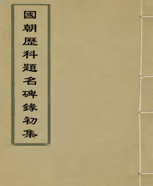 國朝歷科題名碑錄初集